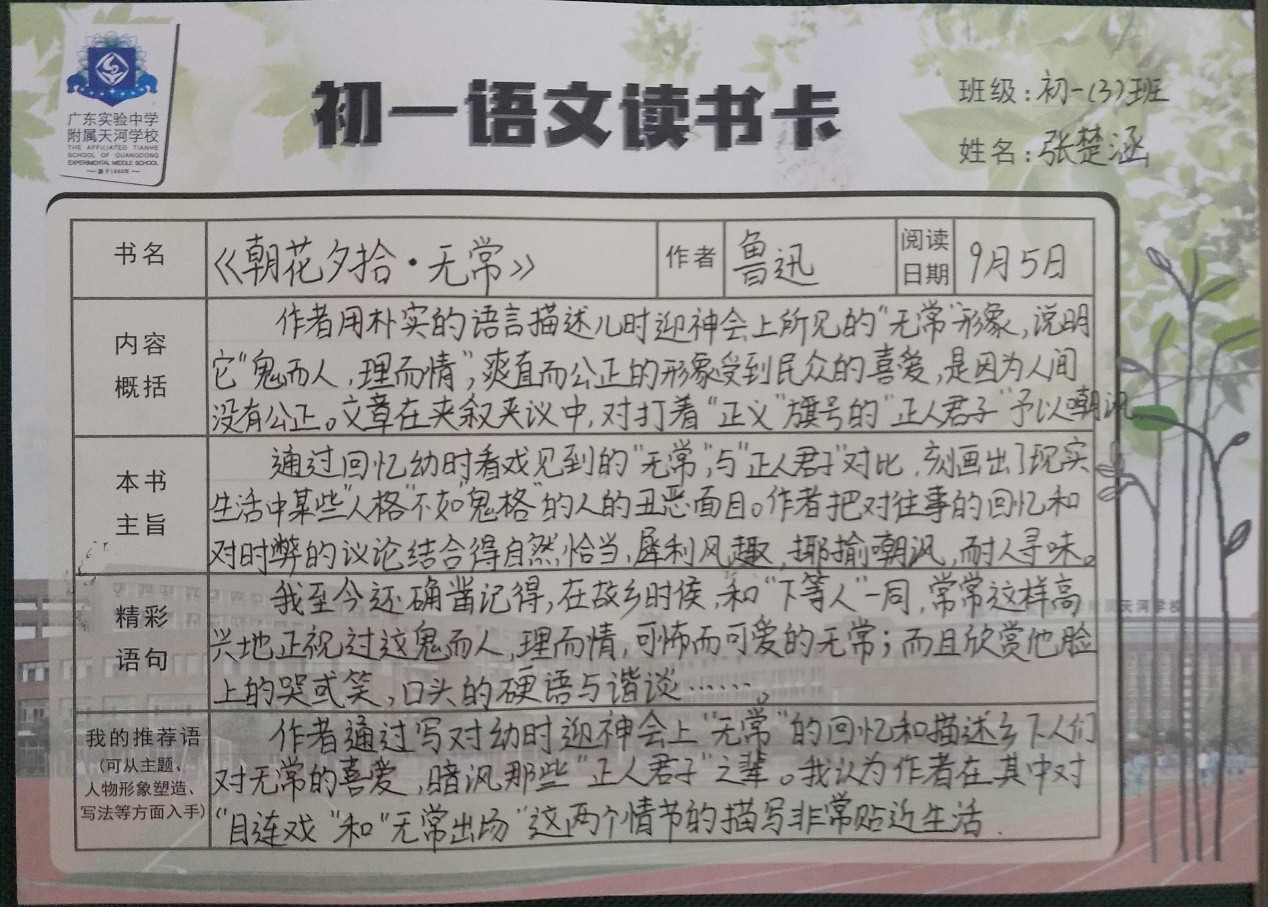 广东实验中学
附属天河学校
THE AFFILIATED TIANHE
SCHOOL OF GUANGDONG
EXPERIMENTAL MIDDLE SCHOOL
初一语文读书卡
班级：初一(3)班
姓名：张楚涵
书名
《朝花夕拾·无常》
作者
鲁迅
阅读
日期
9月5日
内容
概括
作者用朴实的语言描述儿时迎神会上所见的“无常”形象，说明
它“鬼而人，理而情”，爽直而公正的形象受到民众的喜爱，是因为人间
没有公正。文章在夹叙夹议中，对打着“正义”旗号的“正人君子”予以嘲讽
本书
主旨
通过回忆幼时看戏见到的“无常”，与“正人君子”对比，刻画出了现实
生活中某些“人格”不如“鬼格”的人的丑恶面目。作者把对往事的回忆和
对时弊的议论结合得自然恰当，犀利风趣，揶揄嘲讽，耐人寻味。
精彩
语句
我至今还确凿记得，在故乡时侯，和“下等人”一同，常常这样高
兴地正视过这鬼而人，理而情，可怖而可爱的无常；而且欣赏他脸
上的哭或笑，口头的硬语与谐谈……。
我的推荐语
(可从主题、
人物形象塑造、
写法等方面入手)
作者通过写对幼时迎神会上“无常”的回忆和描述乡下人们
对无常的喜爱，暗讽那些“正人君子”之辈。我认为作者在其中对
“目连戏”和“无常出场”这两个情节的描写非常贴近生活.
天河学校